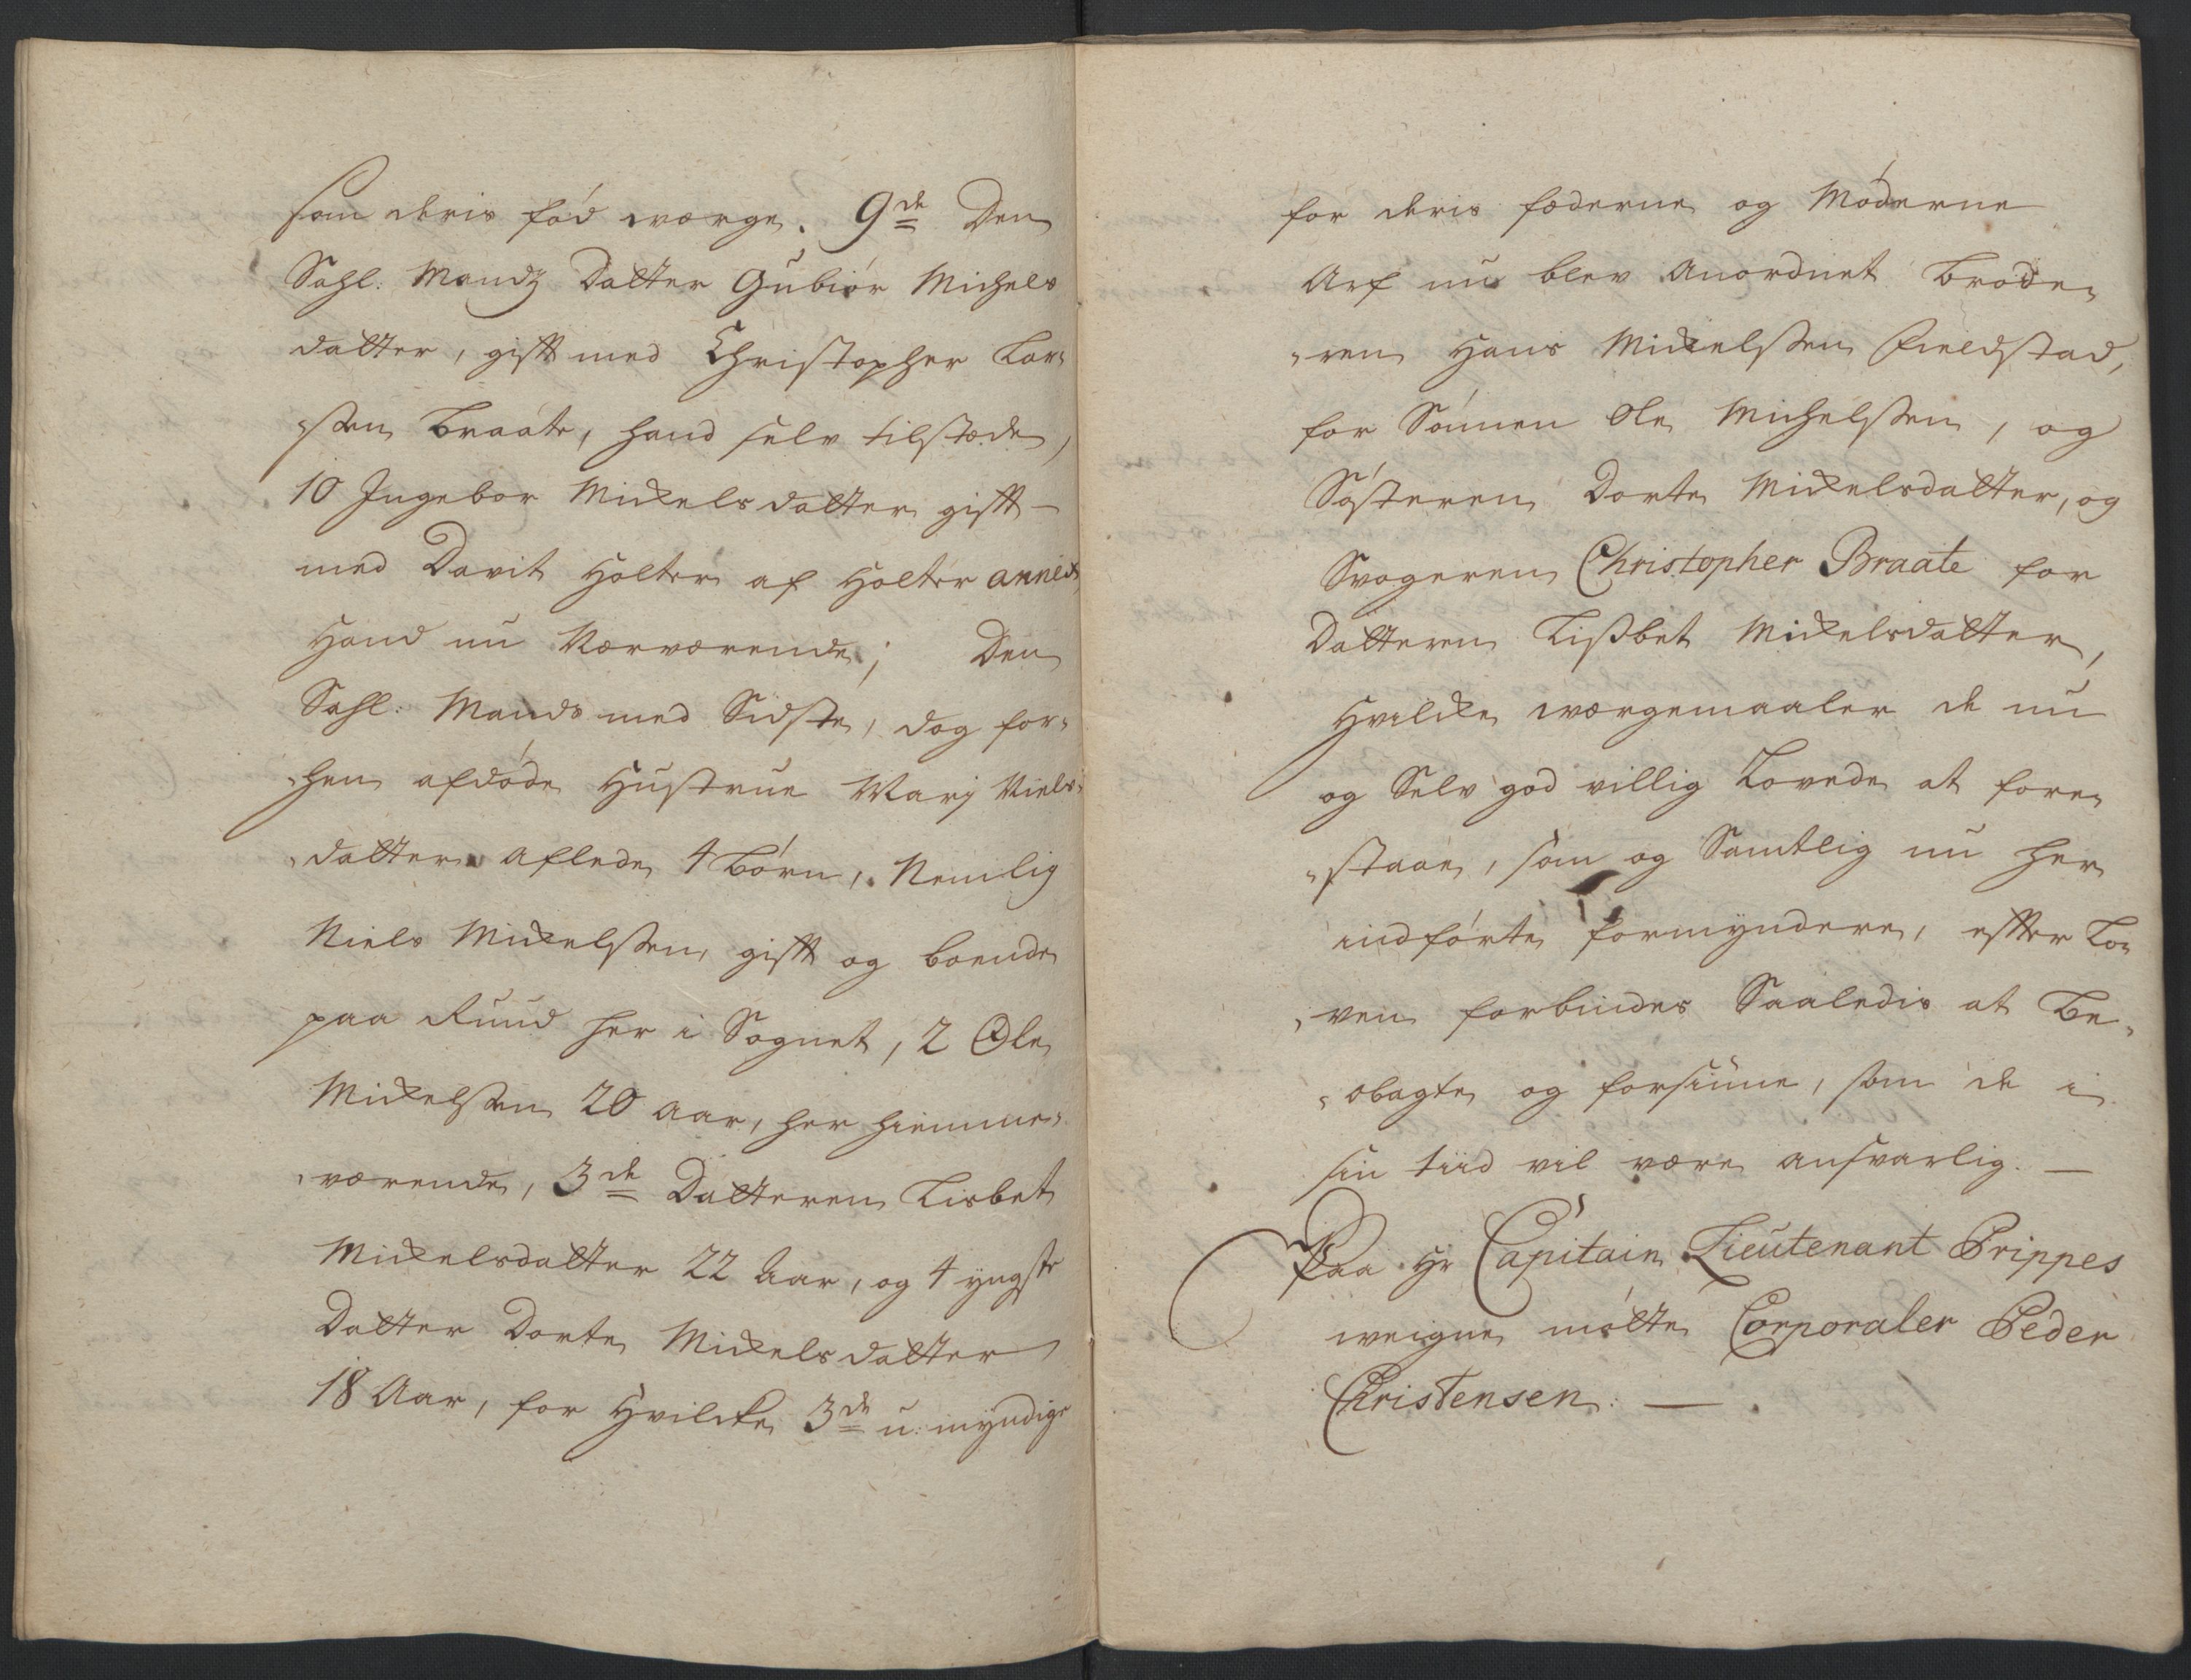 som deris fød værge. 9de Den
Sahl: Mandz Datter Gubiør Michels
datter, gift med Christopher Lar¬
sen Braate, hand selv tilstæde,
10 Ingebor Mickelsdatter gift
med Davit Holter af Holter annex
Hand nu Nærværende; Den
Sahl: Mands med Sidste, dog for¬
hen afdøde Hustrue Marj Niels¬
datter aflede 4 Børn, Nemlig
Niels Mickelssen, gift og boende
paa Ruud her i Sognet, 2 Ole
Mickelssen 20 aar, her hiemme¬
værende, 3de Datteren Lisbet
Mickelsdatter 22 Aar, og 4 yngste
Datter Dorte Mickelsdatter
18 Aar, for Hvilcke 3de u-myndige
for deris fæderne og Møderne
Arf nu blev Anordnet Brode¬
ren Hans Mickelssen Fieldstad,
for Sønnen Ole Michelssen, og
Søsteren Dorte Mickelsdatter, og
Svogeren Christopher Braate for
Datteren Lissbet Mickelsdatter,
Hvilcke værgemaaler de nu
og Selv god villig Lovede at fore¬
staae, som og Samtlig nu her
indførte Formyndere, efter Lo¬
ven forbindes Saaledis at Be¬
obagte og forsiune, som de i
sin tiid vil være ansvarlig. —
Paa Hr Capitain Lieutenant Prippes
weigne møtte Corporaler Peder
Christensen: —